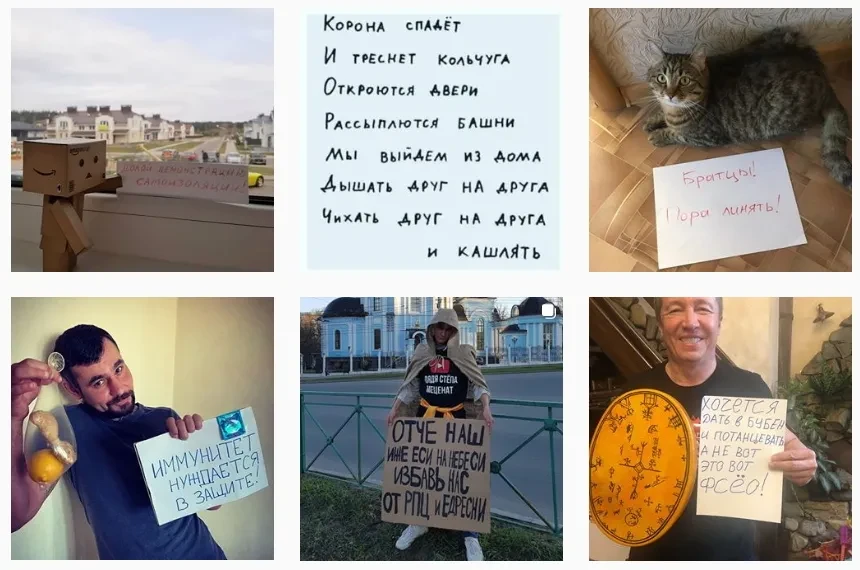 ДОЛОЙ ДЕМОНСТРАЦИЮ
САМОИЗОЛЯЦИИ!
Корона спадёт
И треснет кольчуга
Откроются двери
Рассыплются башни
Мы выйдем из дома
Дышать друг на друга
Чихать друг на друга
и кашлять
Братцы!
Пора линять!
ИММУНИТЕТ
НУЖДАЕТСЯ
В ЗАЩИТЕ!
ДЯДЯ СТЁПА
МЕЦЕНАТ
ОТЧЕ НАШ
ИЖЕ ЕСИ НА НЕБЕСИ
ИЗБАВЬ НАС
ОТ РПЦ И ЕДРЕСНИ
ХОЧЕТСЯ
ДАТЬ В БУБЕН
И ПОТАНЦЕВАТЬ
А НЕ ВОТ
ЭТО ВОТ
ФСЁО!